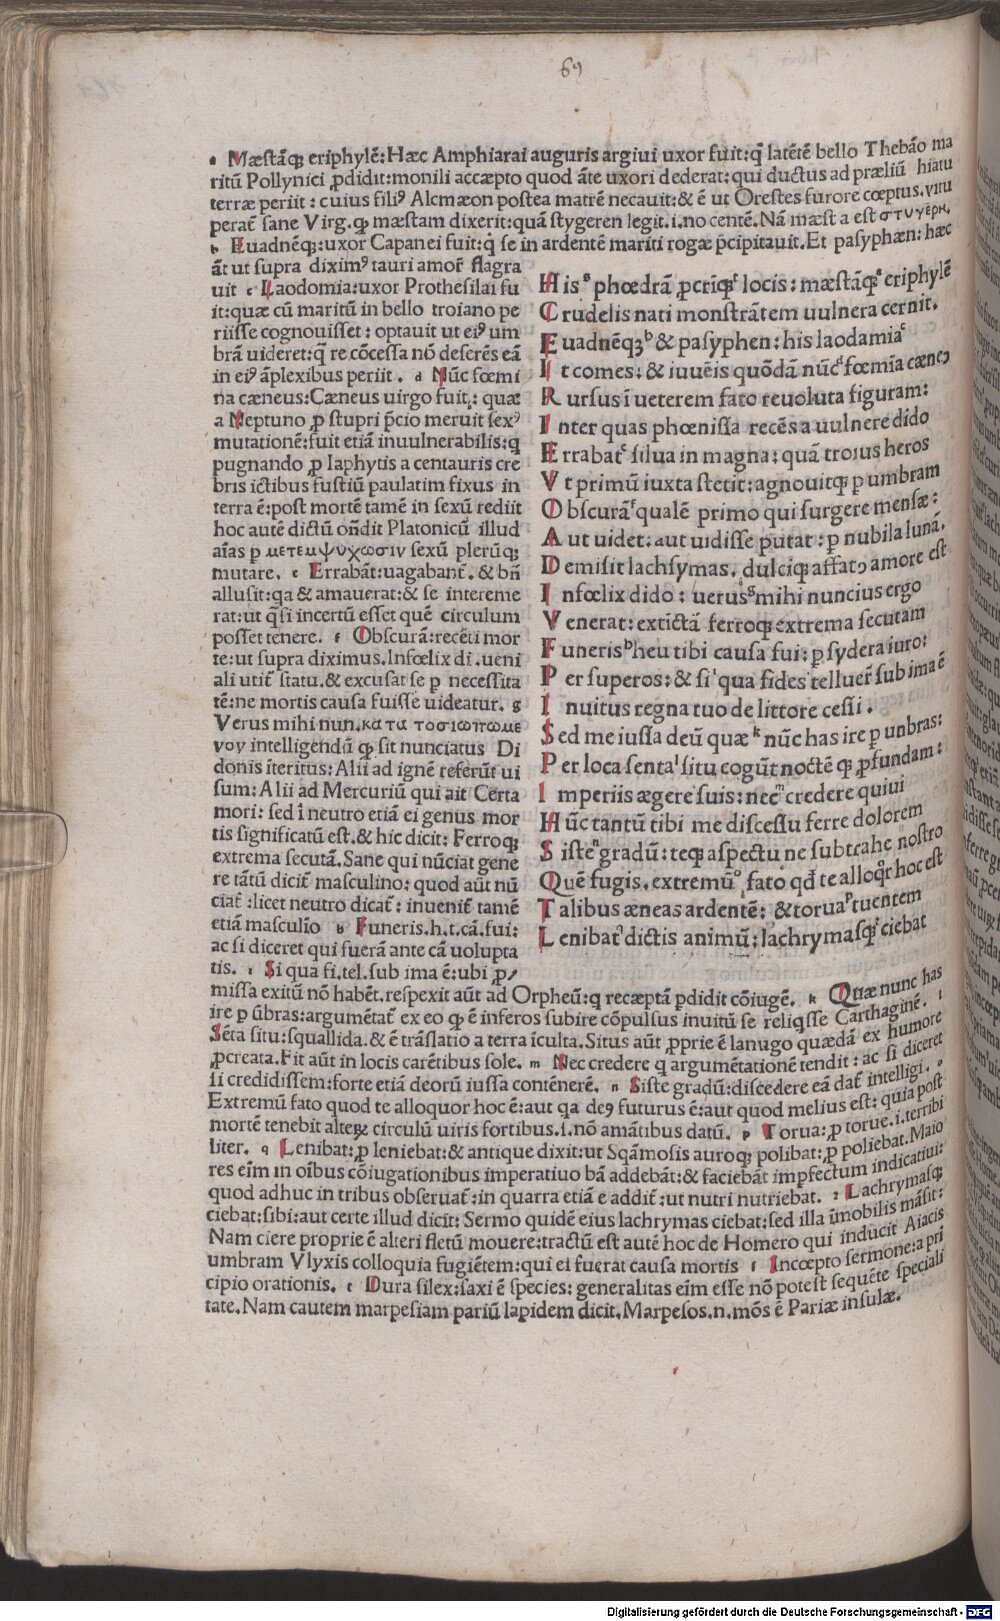 69
a Mæstāqꝫ eriphylē: Hæc Amphiarai auguris argiui uxor fuit: q̄ latētē bello Thebāo ma
ritū Pollynici ꝓdidit: monili accæpto quod āte uxori dederat: qui ductus ad præliū hiatu
terræ periit: cuius filiꝰ Alcmæon postea matrē necauit: & ē ut Orestes furore cœptus. uitu
perat̄ sane Virg. ꝙ mæstam dixerit: quā stygeren legit .i. no centē. Nā mæst a est στυγερη.
b Euadnēqꝫ: uxor Capanei fuit: q̄ se in ardentē mariti rogæ p̄cipitauit. Et pasyphæn: hæc
āt ut supra diximꝰ tauri amor̄ flagra
uit c Laodomia: uxor Prothesilai fu
it: quæ cū maritū in bello troiano pe
riisse cognouisset: optauit ut eiꝰ um
brā uideret: q̄ re cōcessa nō deserēs eā
in eiꝰ āplexibus periit. d Nūc fœmi
na cæneus: Cæneus uirgo fuit: quæ
a Neptuno ꝓ stupri p̄cio meruit sexꝰ
mutationē: fuit etiā inuulnerabilis: q
pugnando ꝓ laphytis a centauris cre
bris ictibus fustiū paulatim fixus in
terra ē: post mortē tamē in sexū rediit
hoc autē dictū on̄dit Platonicū illud
aīas p μετεμψυχωσιν sexū plerūqꝫ
mutare. e Errabāt: uagabant̄. & bn̄
allusit: qa & amauerat: & se intereme
rat: ut q̄si incertū esset quē circulum
posset tenere. f Obscurā: recēti mor
te: ut supra diximus. Infœlix di. ueni
ali utit̄ statu. & excusat se p necessita
tē: ne mortis causa fuisse uideatur. g
Verus mihi nun. κατα τοσιωπωμε
νον intelligendū ꝙ sit nunciatus Di
donis īteritus: Alii ad ignē referūt ui
sum: Alii ad Mercuriū qui ait Certa
mori: sed ī neutro etiā ei genus mor
tis significatū est. & hic dicit: Ferroqꝫ
extrema secutā. Sane qui nūciat gene
re tātū dicit̄ masculino: quod aūt nū
ciat̄: licet neutro dicat̄: inuenit̄ tamē
etiā masculīo h Funeris. h. t. cā. fui:
ac si diceret qui fuerā ante cā uolupta
tis. i Si qua fi. tel. sub ima ē: ubi ꝓ
missa exitū nō habēt. respexit aūt ad Orpheū: q recæptā ꝑdidit cōiugē. k Quæ nunc has
ire p ūbras: argumētat̄ ex eo ꝙ ē inferos subire cōpulsus inuitū se reliqsse Carthaginē. l
Sēta situ: squallida. & ē trāslatio a terra īculta. Situs aūt ꝓprie ē lanugo quædā ex humore
ꝓcreata. Fit aūt in locis carētibus sole. m Nec credere q argumētationē tendit: ac si diceret
si credidissem: forte etiā deorū iussa contēnerē. n Siste gradū: discedere eā dat̄ intelligi. o
Extremū fato quod te alloquor hoc ē: aut qa deꝰ futurus ē: aut quod melius est: quia post
mortē tenebit alteꝝ circulū uiris fortibus .i. nō amātibus datū. p Torua: ꝓ torue .i. terribi
liter. q Lenibat: ꝓ leniebat: & antique dixit: ut Sqāmosis auroqꝫ polibat: ꝓ poliebat. Maio
res eīm in oībus cōiugationibus imperatiuo bā addebāt: & faciebāt imp̄fectum indicatiui:
quod adhuc in tribus obseruat̄: in quarra etiā e addit̄: ut nutri nutriebat. r Lachrymasqꝫ
ciebat: sibi: aut certe illud dicit: Sermo quidē eius lachrymas ciebat: sed illa īmobilis māsit:
Nam ciere proprie ē alteri fletū mouere: tractū est autē hoc de Homero qui inducit Aiacis
umbram Vlyxis colloquia fugiētem: qui ei fuerat causa mortis s Incœpto sermone: a pri
cipio orationis. t Dura silex: saxi ē species: generalitas eīm esse nō potest sequēte speciali
tate. Nam cautem marpesiam pariū lapidem dicit. Marpesos. n. mōs ē Pariæ insulæ.
His phœdrā ꝓcrīqꝫ locis: mæstāqꝫ eriphylē
Crudelis nati monstrātem uulnera cernit.
Euadnēqꝫ & pasyphen: his laodamia
It comes: & iuuēis quōdā nūc fœmīa cæneꝰ
Rursus ī ueterem fato reuoluta figuram:
Inter quas phœnissa recēs a uulnere dido
Errabat silua in magna: quā troius heros
Vt primū iuxta stetit: agnouitqꝫ p umbram
Obscurā qualē primo qui surgere mensæ:
Aut uidet: aut uidisse putat: p nubila lunā.
Demisit lachsymas. dulciqꝫ affatꝰ amore est
Infœlix dido: uerus mihi nuncius ergo
Venerat: extictā ferroqꝫ extrema secutam
Funeris heu tibi causa fui: p sydera iuro:
Per superos: & si qua fides telluer̄ sub ima ē
Inuitus regna tuo de littore cessi:
Sed me iussa deū quæ nūc has ire p unbras:
Per loca senta situ cogūt noctē qꝫ ꝓfundam:
Imperiis ægere suis: nec credere quiui
Hūc tantū tibi me discessu ferre dolorem
Siste gradū: teqꝫ aspectu ne subtrahe nostro
Quē fugis. extremū fato qd̄ te alloqr̄ hoc est
Talibus æneas ardentē: & torua tuentem
Lenibat dictis animū: lachrymasqꝫ ciebat
Digitalisierung gefördert durch die Deutsche Forschungsgemeinschaft - DFG